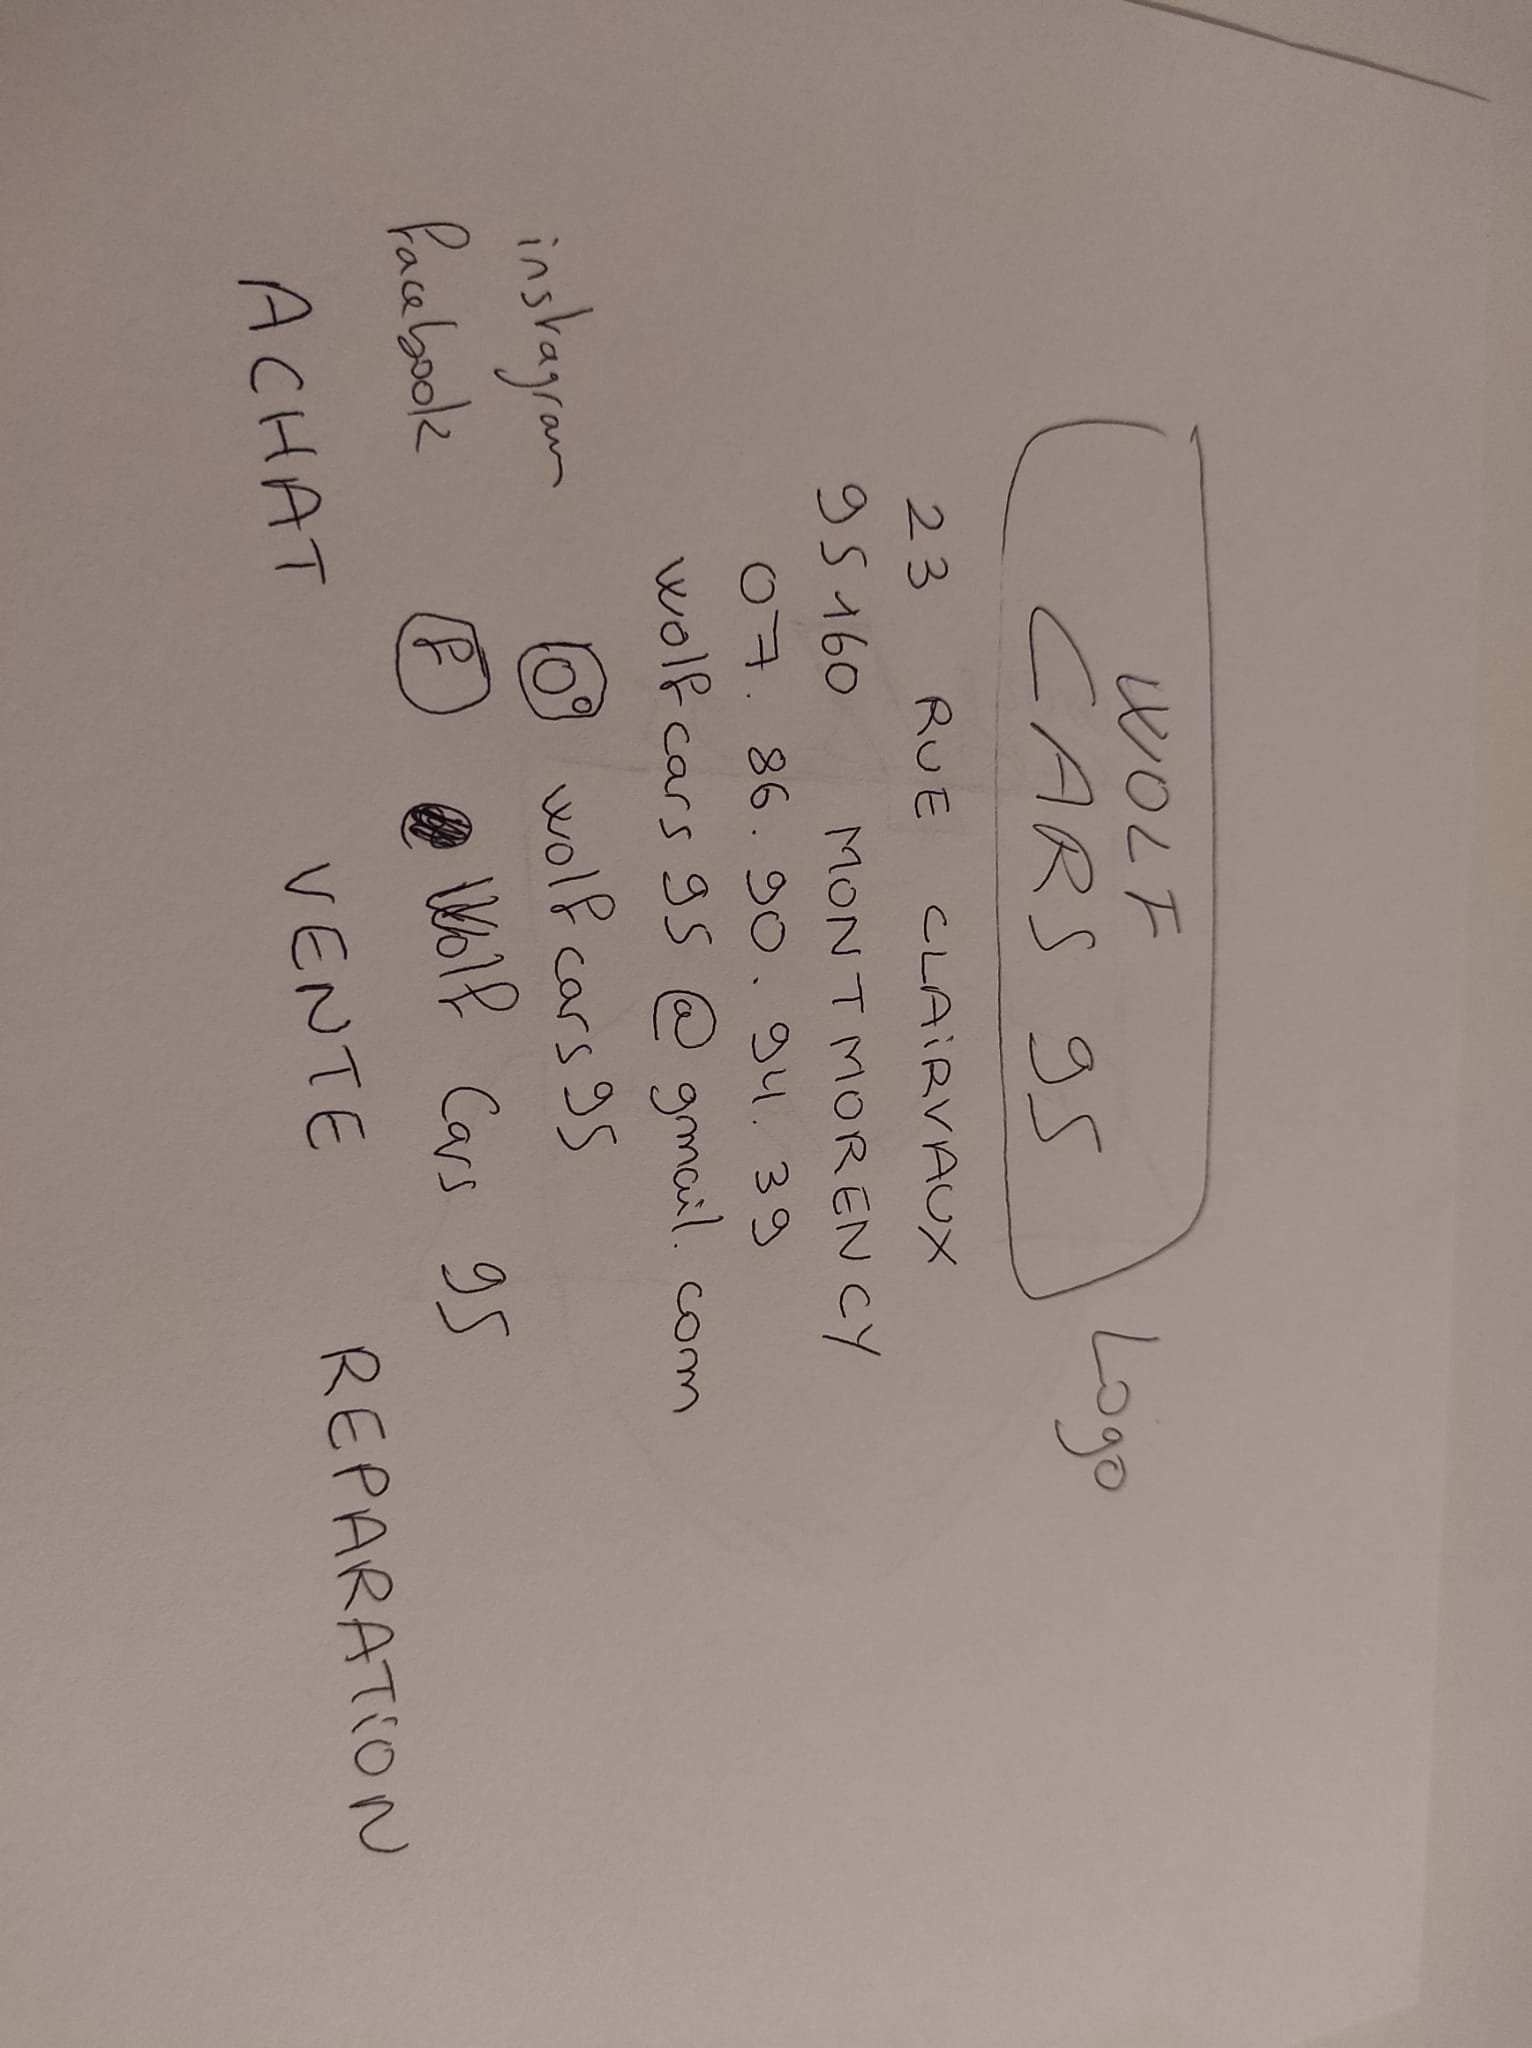 WOLF
CARS 95
Logo
23 RUE CLAiRVAUX
95160 MONTMORENCY
07.86.90.94.39
wolfcars95@gmail.com
instagram wolfcars95
facebook f Wolf Cars 95
ACHAT VENTE REPARATiON